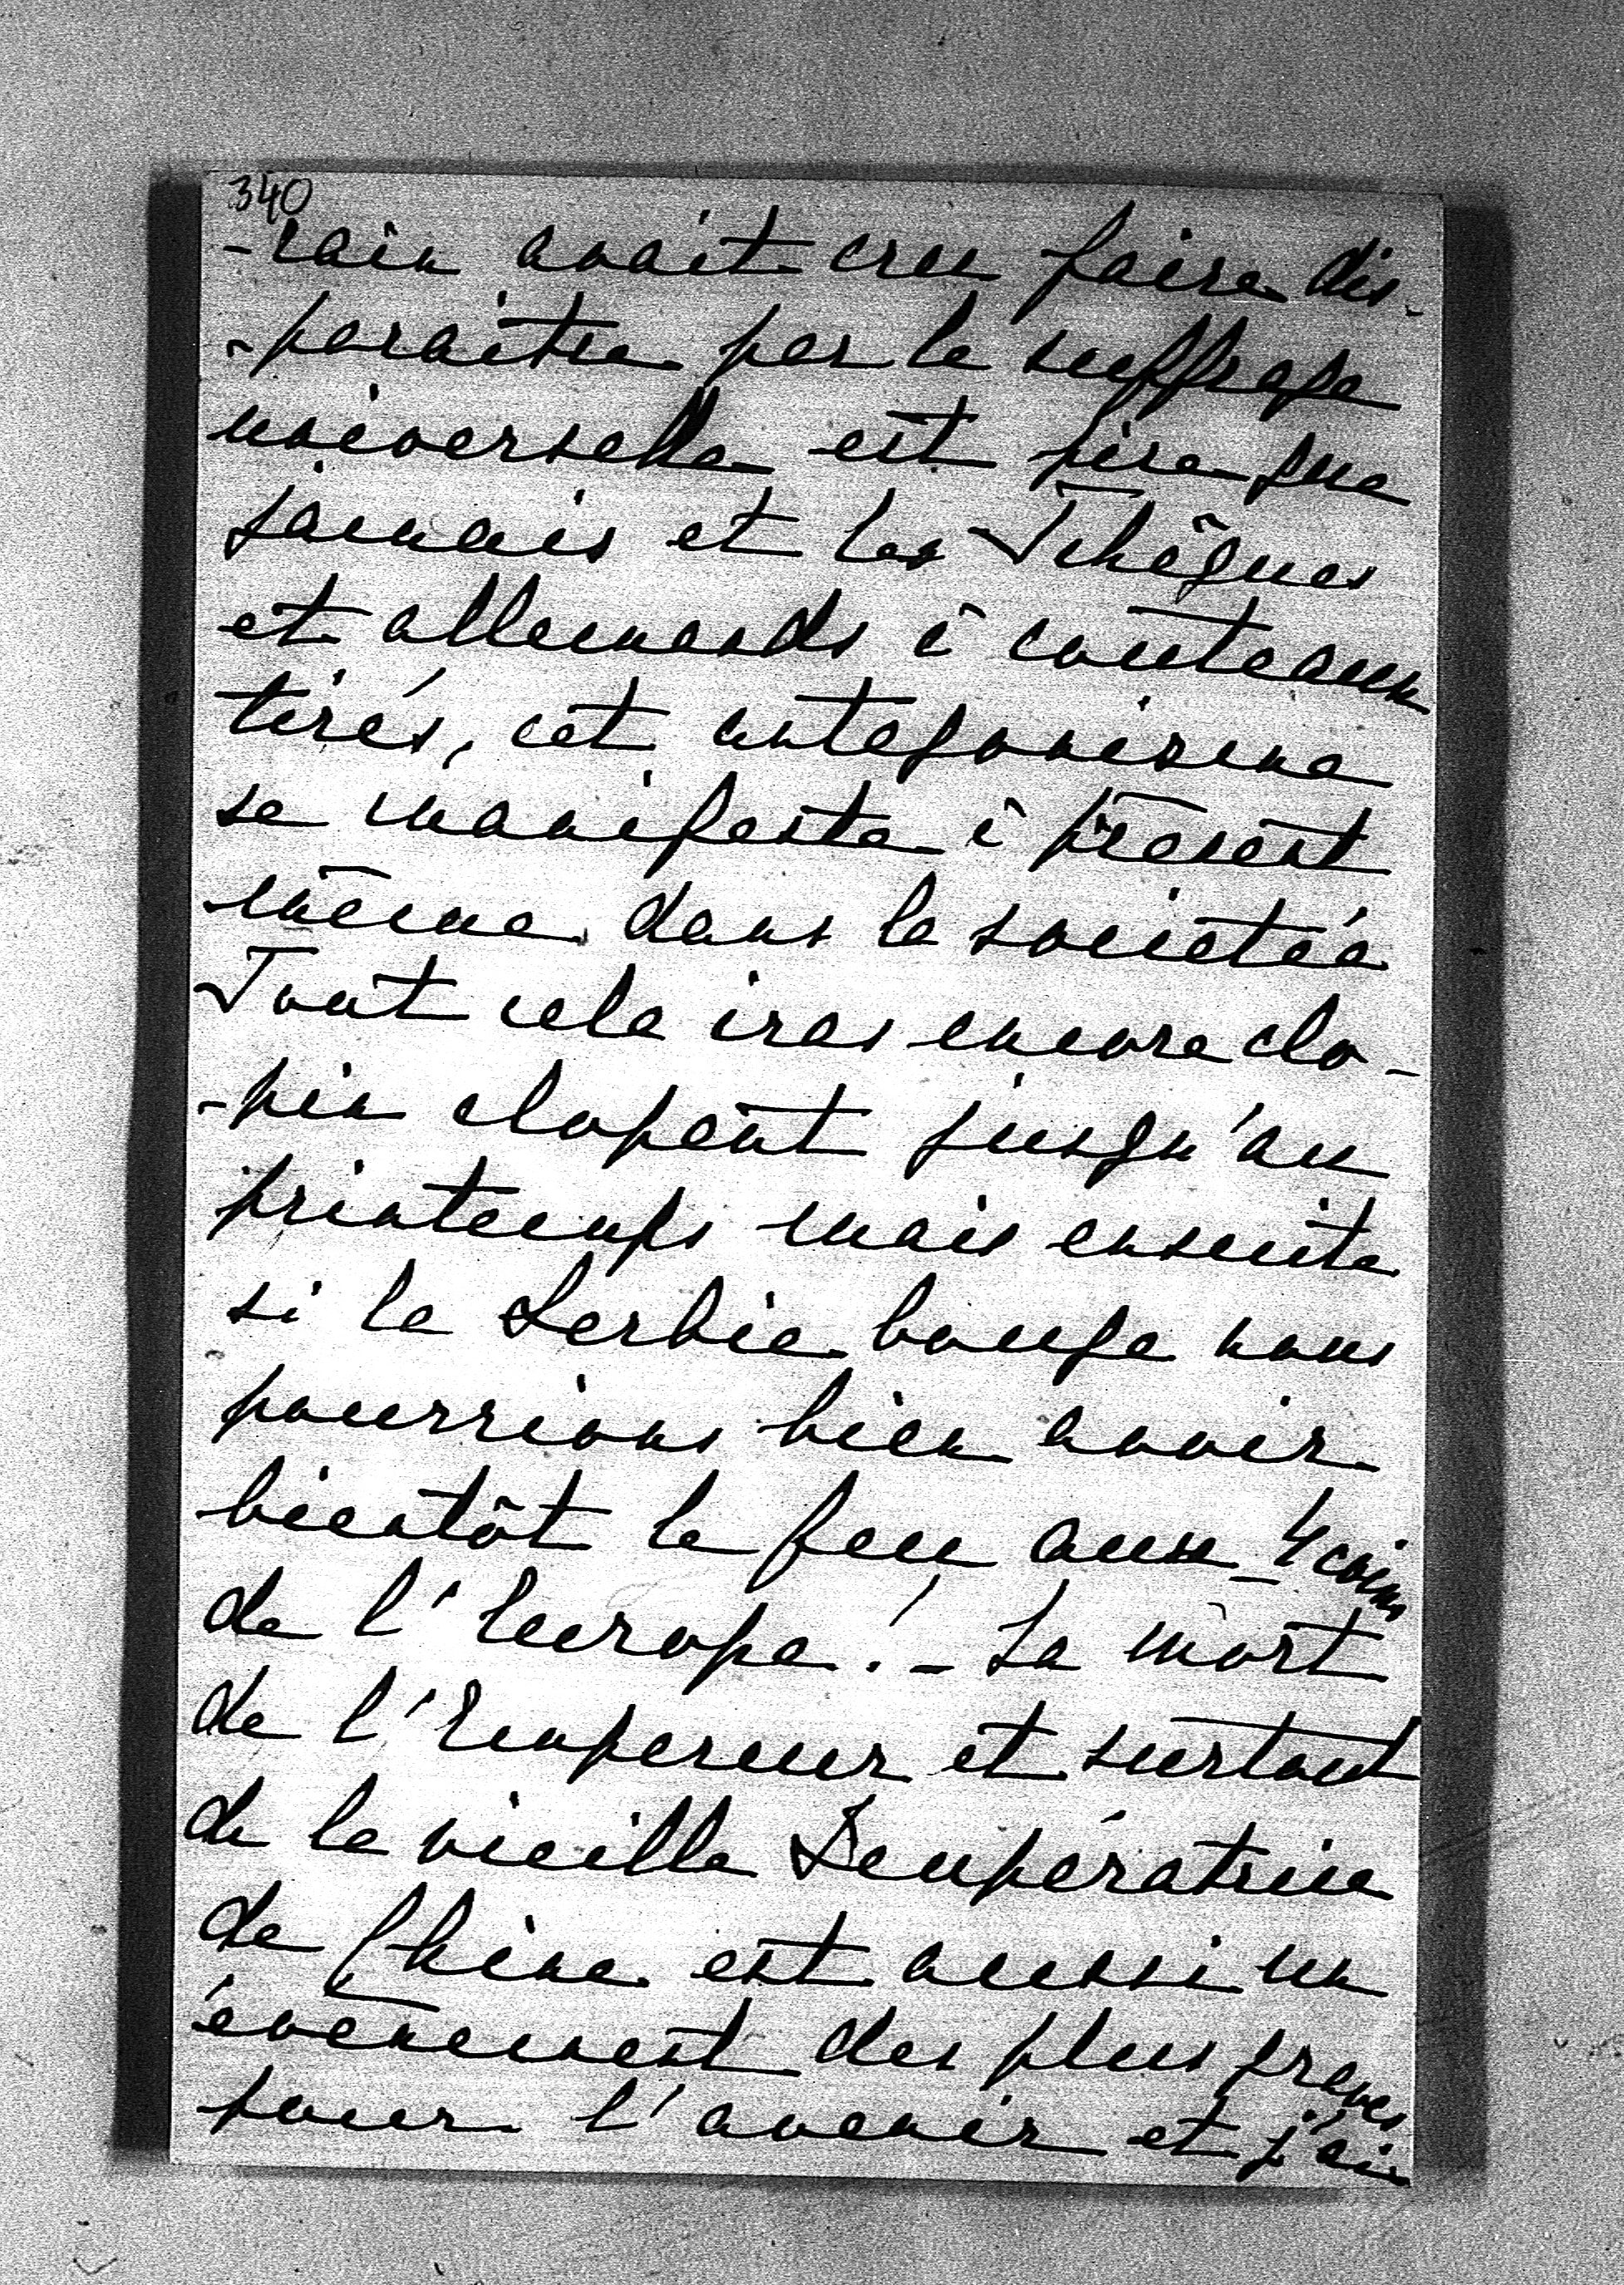 340
-rain avait cru faire dis-
-paraître par le suffrage
universelle est pire que
jamais et les Tchèques
et allemands à couteaux
tirés, cet antagonisme
se manifeste à présent
même dans la societée
Tout cela iras encore clo-
-pin clopent jusqu'au
printemps mais ensuite
si la Serbie bouge nous
pourrions bien avoir
bientôt le feu aux 4 coins
de l'Europe! - La mort
de l'Empereur et surtout
de la vieille Impératrice
de Chine est aussi un
évènement des plus graves
pour l'avenir et j'ai